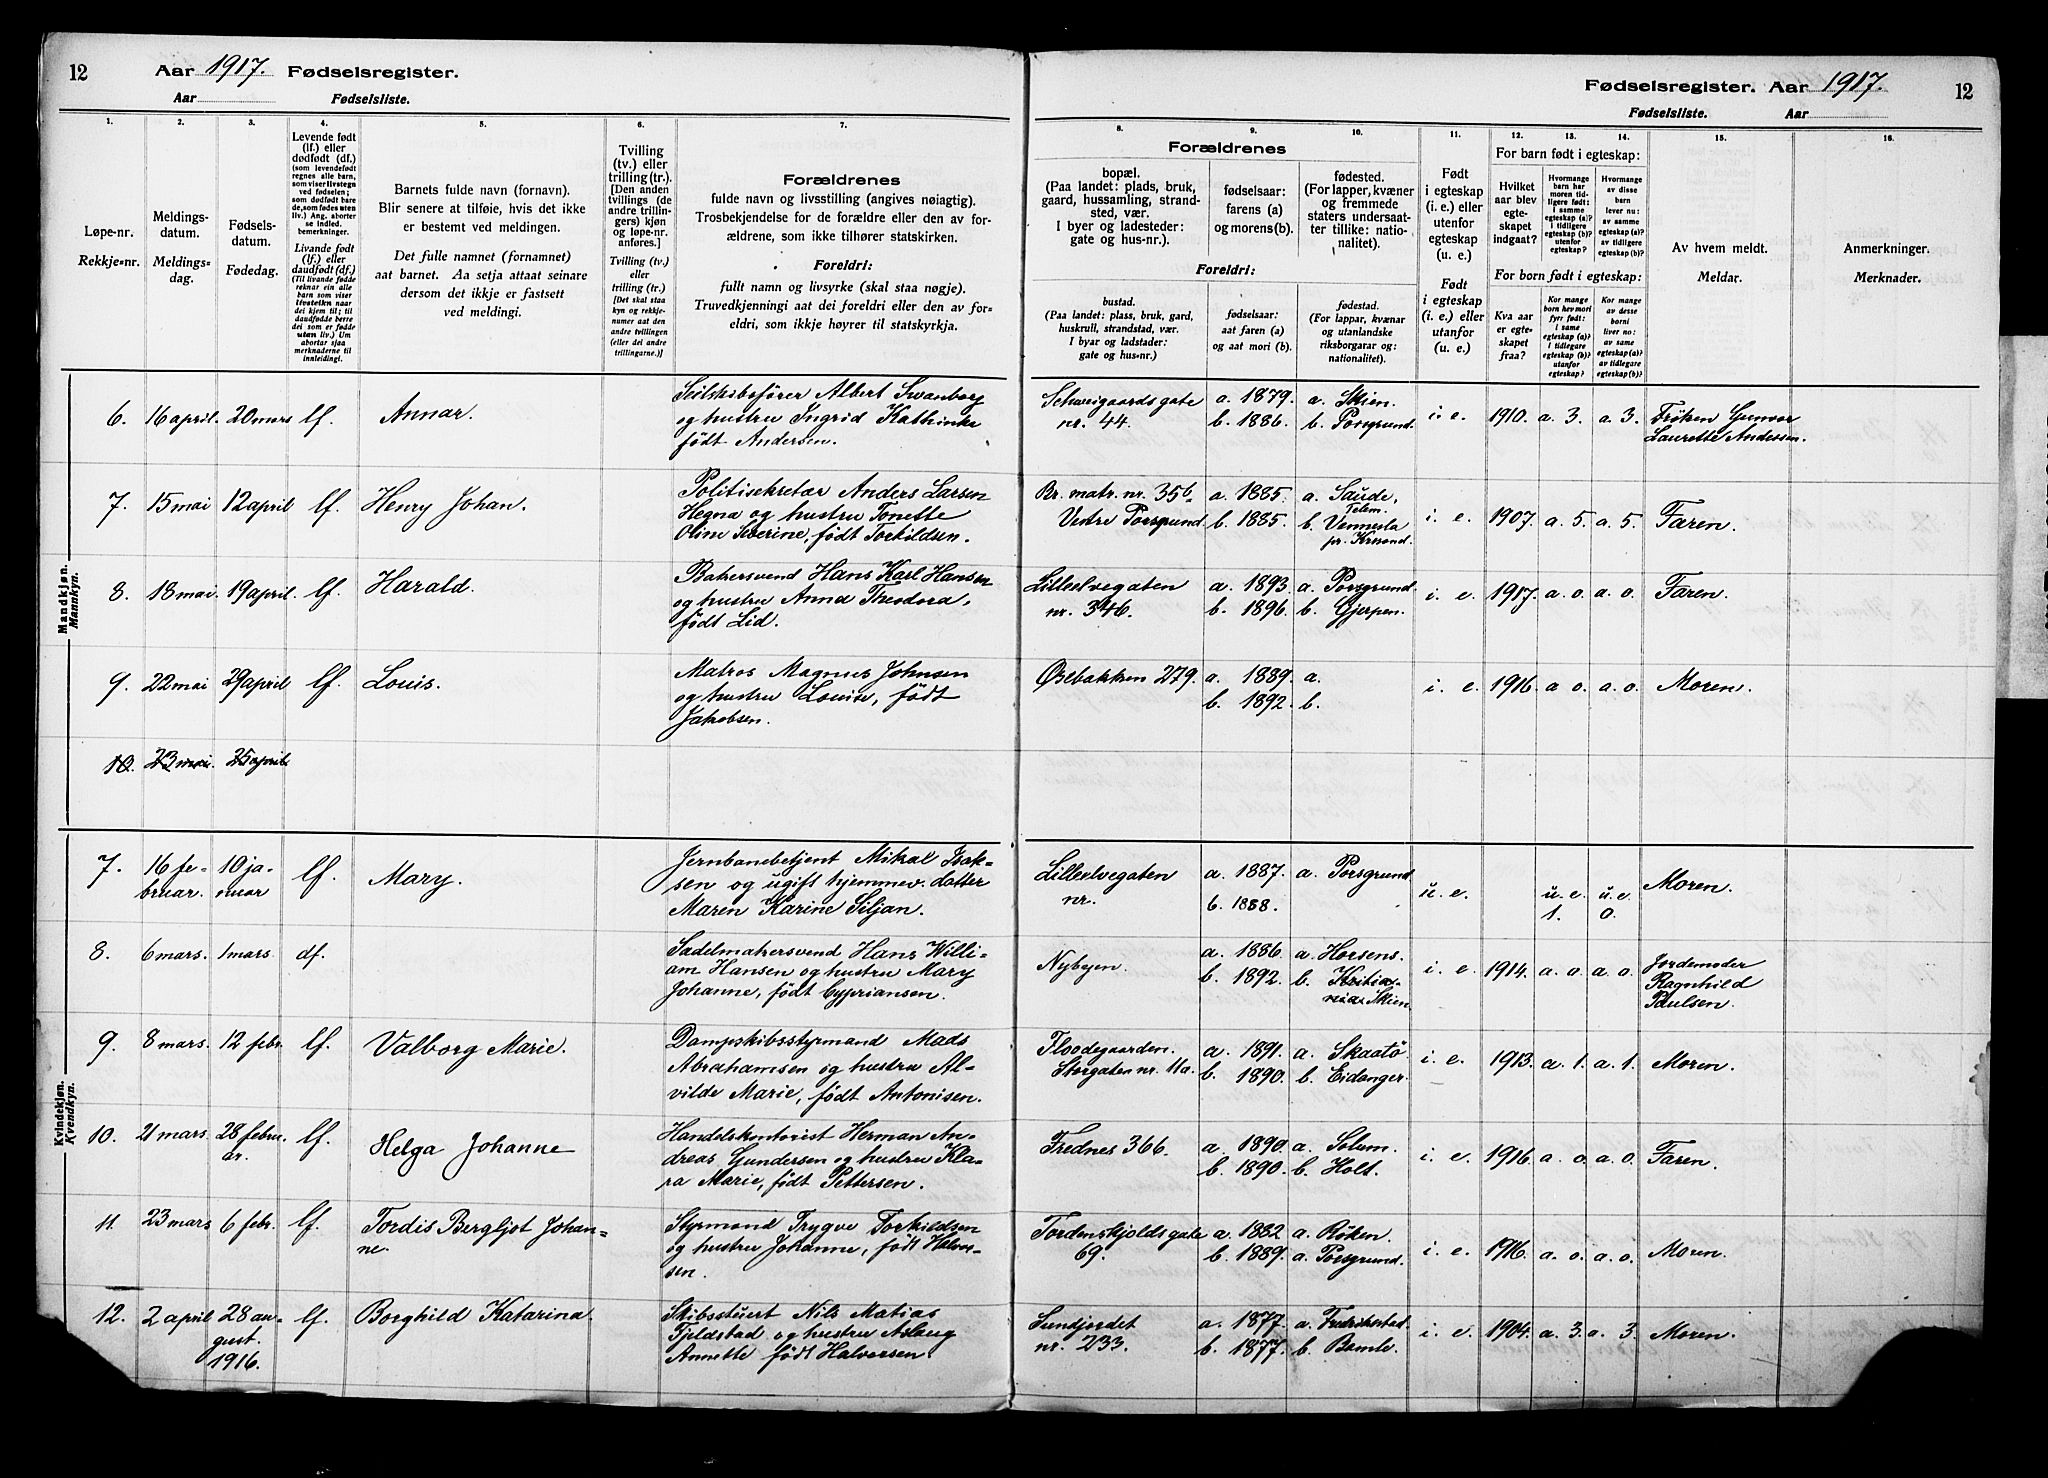 12 Aar 1917. Fødselsregister.
Aar Fødselsliste.
Fødselsregister. Aar 1917. 12
Fødselsliste. Aar
1. 2. 3. 4. 5. 6. 7. 8. 9. 10. 11. 12. 13. 14. 15. 16.
Løpe-nr.
Rekkje-nr.
Meldings-
datum.
Meldings-
dag.
Fødsels-
datum.
Fødedag.
Levende født
(lf.) eller
dødfødt (df.)
(som levendefødt
regnes alle barn,
som viser livstegn
ved fødselen;
som dødfødt bare
de, som fødes uten
liv.) Ang. aborter
se indled.
bemerkninger.
Livande født
(lf.) eller
daudfødt (df.)
(Til livande fødde
reknar ein alle
barn som viser
livsteikn naar
dei kjem til; til
daudfødde berre
dei som er fødde
utan liv.) Um
abortar sjaa
merknaderne til
innleiding!
Barnets fulde navn (fornavn).
Blir senere at tilføie, hvis det ikke
er bestemt ved meldingen.
Det fulle namnet (fornamnet)
aat barnet. Aa setja attaat seinare
dersom det ikkje er fastsett
ved meldingi.
Tvilling
(tv.) eller
trilling (tr.)
[Den anden
tvillings (de
andre trillin-
gers) kjøn
og løpe-nr.
anføres.]
Tvilling (tv.)
eller
trilling (tr.)
[Det skal staa
kyn og rekkje-
numer aat den
andre tvillingen
(eller dei andre
trillingarne.)]
Forældrenes
fulde navn og livsstilling (angives nøiagtig).
Trosbekjendelse for de forældre eller den av for-
ældrene, som ikke tilhører statskirken.
Foreldri:
fullt namn og livsyrke (skal staa nøgje).
Truvedkjenningi aat dei foreldri eller den av for-
eldri, som ikkje høyrer til statskyrkja.
Forældrenes
bopæl.
(Paa landet: plads, bruk,
gaard, hussamling, strand-
sted, vær.
I byer og ladesteder:
gate og hus-nr.).
fødselsaar:
farens (a)
og morens(b).
fødested.
(For lapper, kvæner
og fremmede
staters undersaat-
ter tillike: natio-
nalitet).
Foreldri:
bustad.
(Paa landet: plass, bruk, gard,
huskrull, strandstad, vær.
I byar og ladstader:
gate og hus-nr.)
fødselsaar:
aat faren (a)
og aat mori (b).
fødestad.
(For lappar, kvænar
og utanlandske
riksborgarar og:
nationalitet).
Født
i egteskap
(i. e.) eller
utenfor
egteskap
(u. e.)
Født
i egteskap
(i. e.) eller
utanfor
(u. e.)
For barn født i egteskap:
Hvilket
aar blev
egte-
skapet
indgaat?
Hvormange
barn har
moren tid-
ligere født:
I samme
egteskap (a)?
I tidligere
egteskap (b)?
utenfor
egteskap?
Hvormange
av disse
barn
lever nu:
av samme
egteskap (a)?
av tidligere
egteskap (b)?
For born født i egteskap:
Kva aar
er egte-
skapet
fraa?
Kor mange
born hev mori
fyrr født:
I same
egteskap (a)?
I tidlegare
egteskap (b)?
utanfor
egteskap?
Kor mange
av desse
borni
liver no:
av same
egteskap (a)?
av tidlegare
egteskap (b)?
Av hvem meldt.
Meldar.
Anmerkninger.
Merknader.
Mandkjøn.
Mannkyn.
6. 16 april. 20 mars lf. Annar. Seilskibsfører Albert Swanberg
og hustru Ingrid Kathinka
født Andersen.
Schweigaardsgate
nr. 44.
a. 1879. a. Skien.
b. 1886. b. Porsgrund.
i. e. 1910. a. 3. a. 3. Frøken Gunvor
Laurette Andersen.
7. 15 mai 12 april lf. Henry Johan. Politisekretær Anders Larsen
Hegna og hustru Tonette
Oline Severine, født Torkildsen.
Br. matr. nr. 356.
Vestre Porsgrund
a. 1885. a. Saude,
Telem.
b. 1885. b. Vennesla
pr. Krsand.
i. e. 1907. a. 5. a. 5. Faren.
8. 18 mai. 19 april. lf. Harald. Bakersvend Hans Karl Hansen
og hustru Anna Theodora,
født Lid.
Lilleelvegaten
nr. 346.
a. 1893. a. Porsgrund.
b. 1896. b. Gjerpen.
i. e. 1917. a. o. a. o. Faren.
9. 22 mai 29 april lf. Louis. Matros Magnus Johnsen
og hustru Louise, født
Jakobsen.
Øsebakken 279.
a. 1889. a.
b. 1892. b.
i. e. 1916. a o. a. o. Moren.
10. 23 mai. 25 april.
Kvindekjøn.
Kvendkyn.
7. 16 fe-
bruar.
10 ja-
nuar
lf. Mary. Jernbanebetjent Mikal Isak-
sen og ugift hjemmev. datter
Maren Karine Siljan.
Lilleelvegaten
nr.
a. 1887. a. Porsgrund
b. 1888.
u. e. u. e.
1.
u. e
0.
Moren.
8. 6 mars. 1 mars. df. Sadelmakersvend Hans Willi-
am Hansen og hustru Mary
Johanne, født Cypriansen.
Nybyen.
a. 1886. a. Horsens.
b. 1892. b. Kristia-
nia. Skien
i. e. 1914. a. o. a. o. Jordemoder
Ragnhild
Paulsen.
9. 8 mars. 12 febr. lf. Valborg Marie. Dampskibsstyrmand Mads
Abrahamsen og hustru Al-
vilde Marie, født Antonisen.
Floodegaarden.
Storgaten nr. 11a.
a. 1891. a. Skaatø
b. 1890. b. Eidanger.
i. e. 1913. a. 1. a. 1. Moren.
10. 21 mars. 28 febru-
ar.
lf. Helga Johanne Handelskontorist Herman An-
dreas Gundersen og hustru Kla-
ra Marie, født Pettersen.
Frednes 366.
a. 1890. a. Solum.
b. 1890. b. Holt.
i. e. 1916. a. o. a. o. Faren.
11. 23 mars 6 febr. lf. Tordis Bergljot Johan-
ne.
Styrmand Trygve Torkildsen
og hustru Johanne, født Halvor-
sen.
Tordenskjoldsgate
69.
a. 1882 a. Røken.
b. 1889. a. Porsgrund.
i. e. 1916. a. o. a. o. Moren.
12. 2 april 28 au-
gust.
1916.
lf. Borghild Katarina. Skibsstuert Nils Matias
Fjeldstad og hustru Aslaug
Annette født Halvorsen.
Sundjordet
nr. 233.
a. 1877. a. Fredrikstad.
b. 1877. b. Bamle.
i. e. 1904. a. 3. a. 3. Moren.